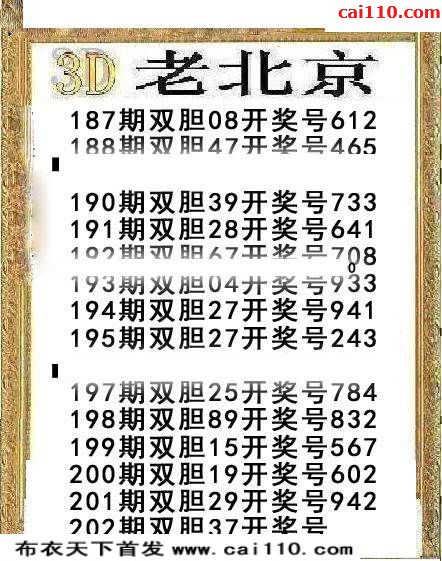 cai110.com
3D 老北京
187期双胆08开奖号612
188期双胆47开奖号465
190期双胆39开奖号733
191期双胆28开奖号641
192期双胆67开奖号708
0
193期双胆04开奖号933
194期双胆27开奖号941
195期双胆27开奖号243
197期双胆25开奖号784
198期双胆89开奖号832
199期双胆15开奖号567
200期双胆19开奖号602
201期双胆29开奖号942
202期双胆37开奖号
布衣天下首发 www.cai110.com